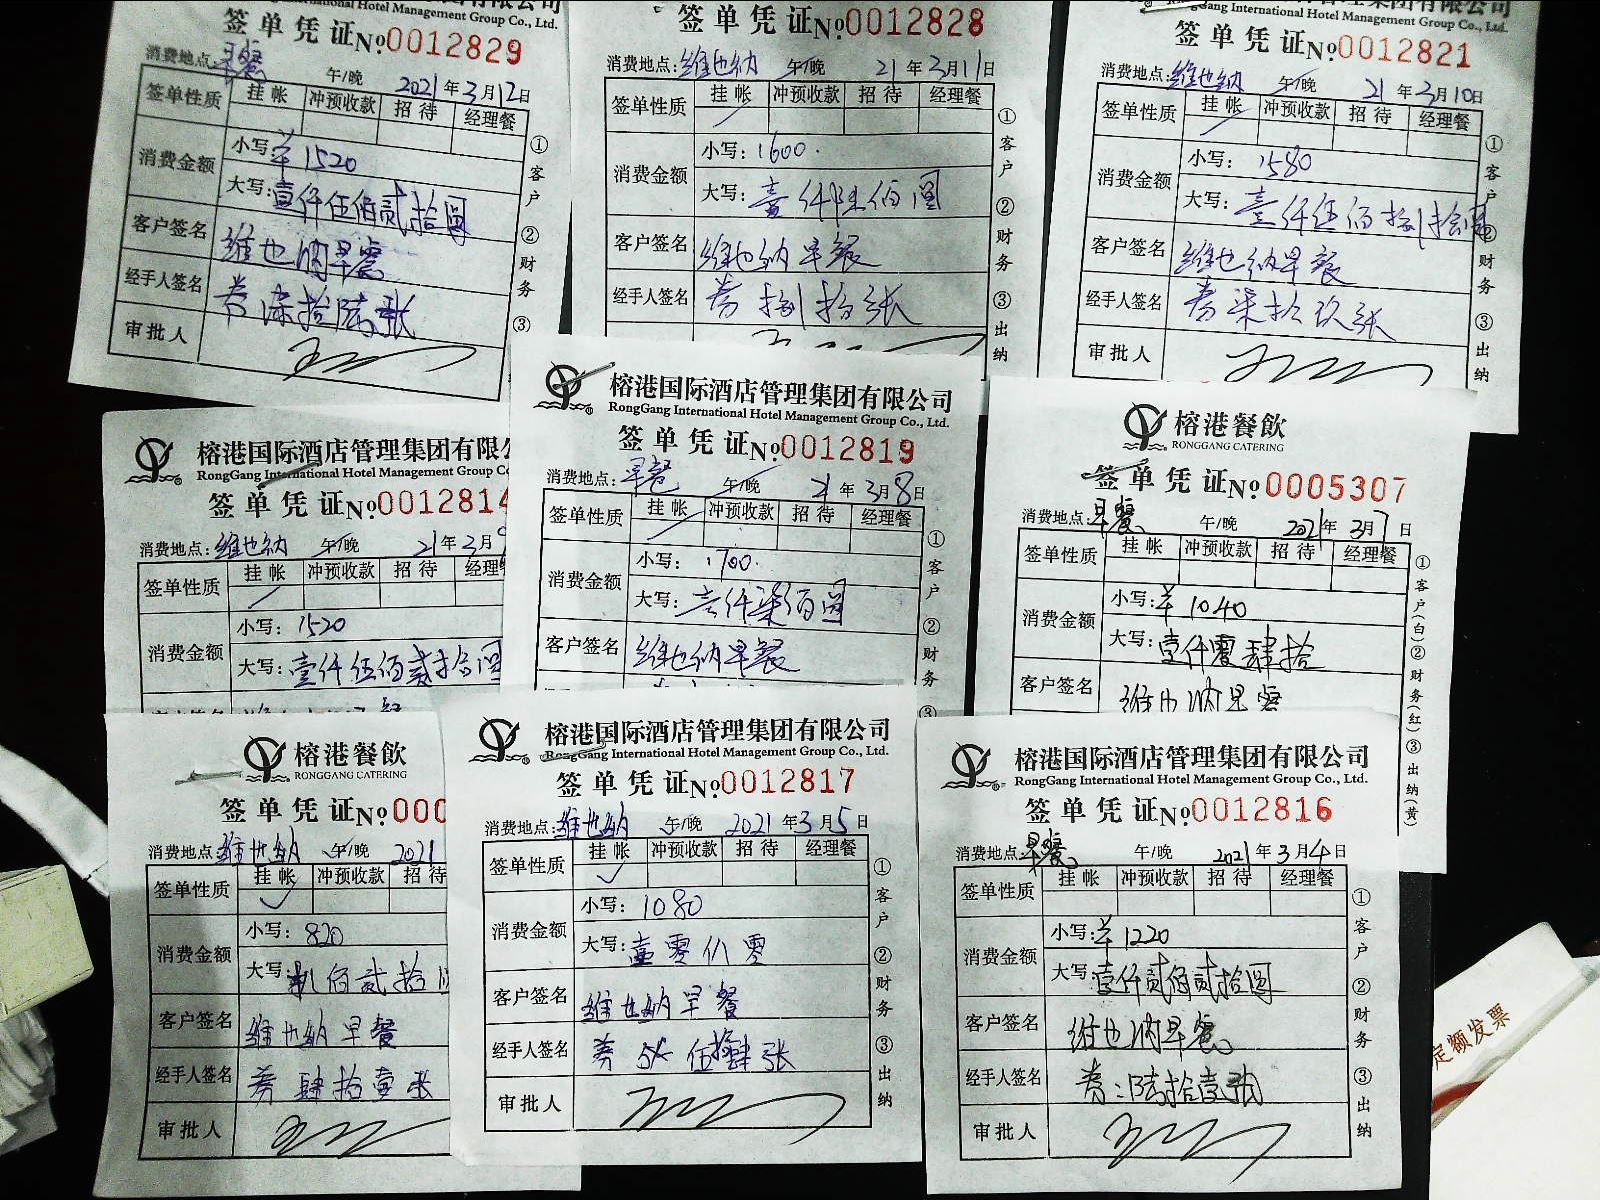 International Hotel Management Group Co., Ltd.
签单凭证 No 0012829
消费地点: 早餐 午/晚 2021年3月12日
签单性质 挂帐 冲预收款 招待 经理餐
消费金额 小写: ¥1520
大写: 壹仟伍佰贰拾圆
客户签名 维也纳早餐
经手人签名 券柒拾陆张
审批人
①客户 ②财务 ③
签单凭证 No 0012828
消费地点: 维也纳 午/晚 21年3月11日
签单性质 挂帐 冲预收款 招待 经理餐
消费金额 小写: 1600.
大写: 壹仟陆佰圆
客户签名 维也纳早餐
经手人签名 券捌拾张
①客户 ②财务 ③出纳
RongGang International Hotel Management Group Co., Ltd.
签单凭证 No 0012821
消费地点: 维也纳 午/晚 21年3月10日
签单性质 挂帐 冲预收款 招待 经理餐
消费金额 小写: 1580
大写: 壹仟伍佰捌拾圆
客户签名 维也纳早餐
经手人签名 券柒拾玖张
审批人
①客户 ②财务 ③出纳
榕港国际酒店管理集团有限
RongGang International Hotel Management Group Co
签单凭证 No 0012814
消费地点: 维也纳 午/晚 21年3月9
签单性质 挂帐 冲预收款 招待 经理
消费金额 小写: 1520
大写: 壹仟伍佰贰拾圆
榕港国际酒店管理集团有限公司
RongGang International Hotel Management Group Co., Ltd.
签单凭证 No 0012819
消费地点: 早餐 午/晚 21年3月8日
签单性质 挂帐 冲预收款 招待 经理餐
消费金额 小写: 1700.
大写: 壹仟柒佰圆
客户签名 维也纳早餐
①客户 ②财务 ③
榕港餐飲
RONGGANG CATERING
签单凭证 No 0005307
消费地点: 早餐 午/晚 2021年3月7日
签单性质 挂帐 冲预收款 招待 经理餐
消费金额 小写: ¥1040
大写: 壹仟零肆拾
客户签名 维也纳早餐
①客户(白) ②财务(红) ③出纳(黄)
榕港餐飲
RONGGANG CATERING
签单凭证 No 000
消费地点: 维也纳 午/晚 2021
签单性质 挂帐 冲预收款 招待
消费金额 小写: 820
大写: 捌佰贰拾
客户签名 维也纳早餐
经手人签名 券肆拾壹张
审批人
榕港国际酒店管理集团有限公司
RongGang International Hotel Management Group Co., Ltd.
签单凭证 No 0012817
消费地点: 维也纳 午/晚 2021年3月5日
签单性质 挂帐 冲预收款 招待 经理餐
消费金额 小写: 1080
大写: 壹零八零
客户签名 维也纳早餐
经手人签名 券 伍拾肆张
审批人
①客户 ②财务 ③出纳
榕港国际酒店管理集团有限公司
RongGang International Hotel Management Group Co., Ltd.
签单凭证 No 0012816
消费地点: 早餐 午/晚 2021年3月4日
签单性质 挂帐 冲预收款 招待 经理餐
消费金额 小写: ¥1220
大写: 壹仟贰佰贰拾圆
客户签名 维也纳早餐
经手人签名 券:陆拾壹张
审批人
①客户 ②财务 ③出纳
定额发票